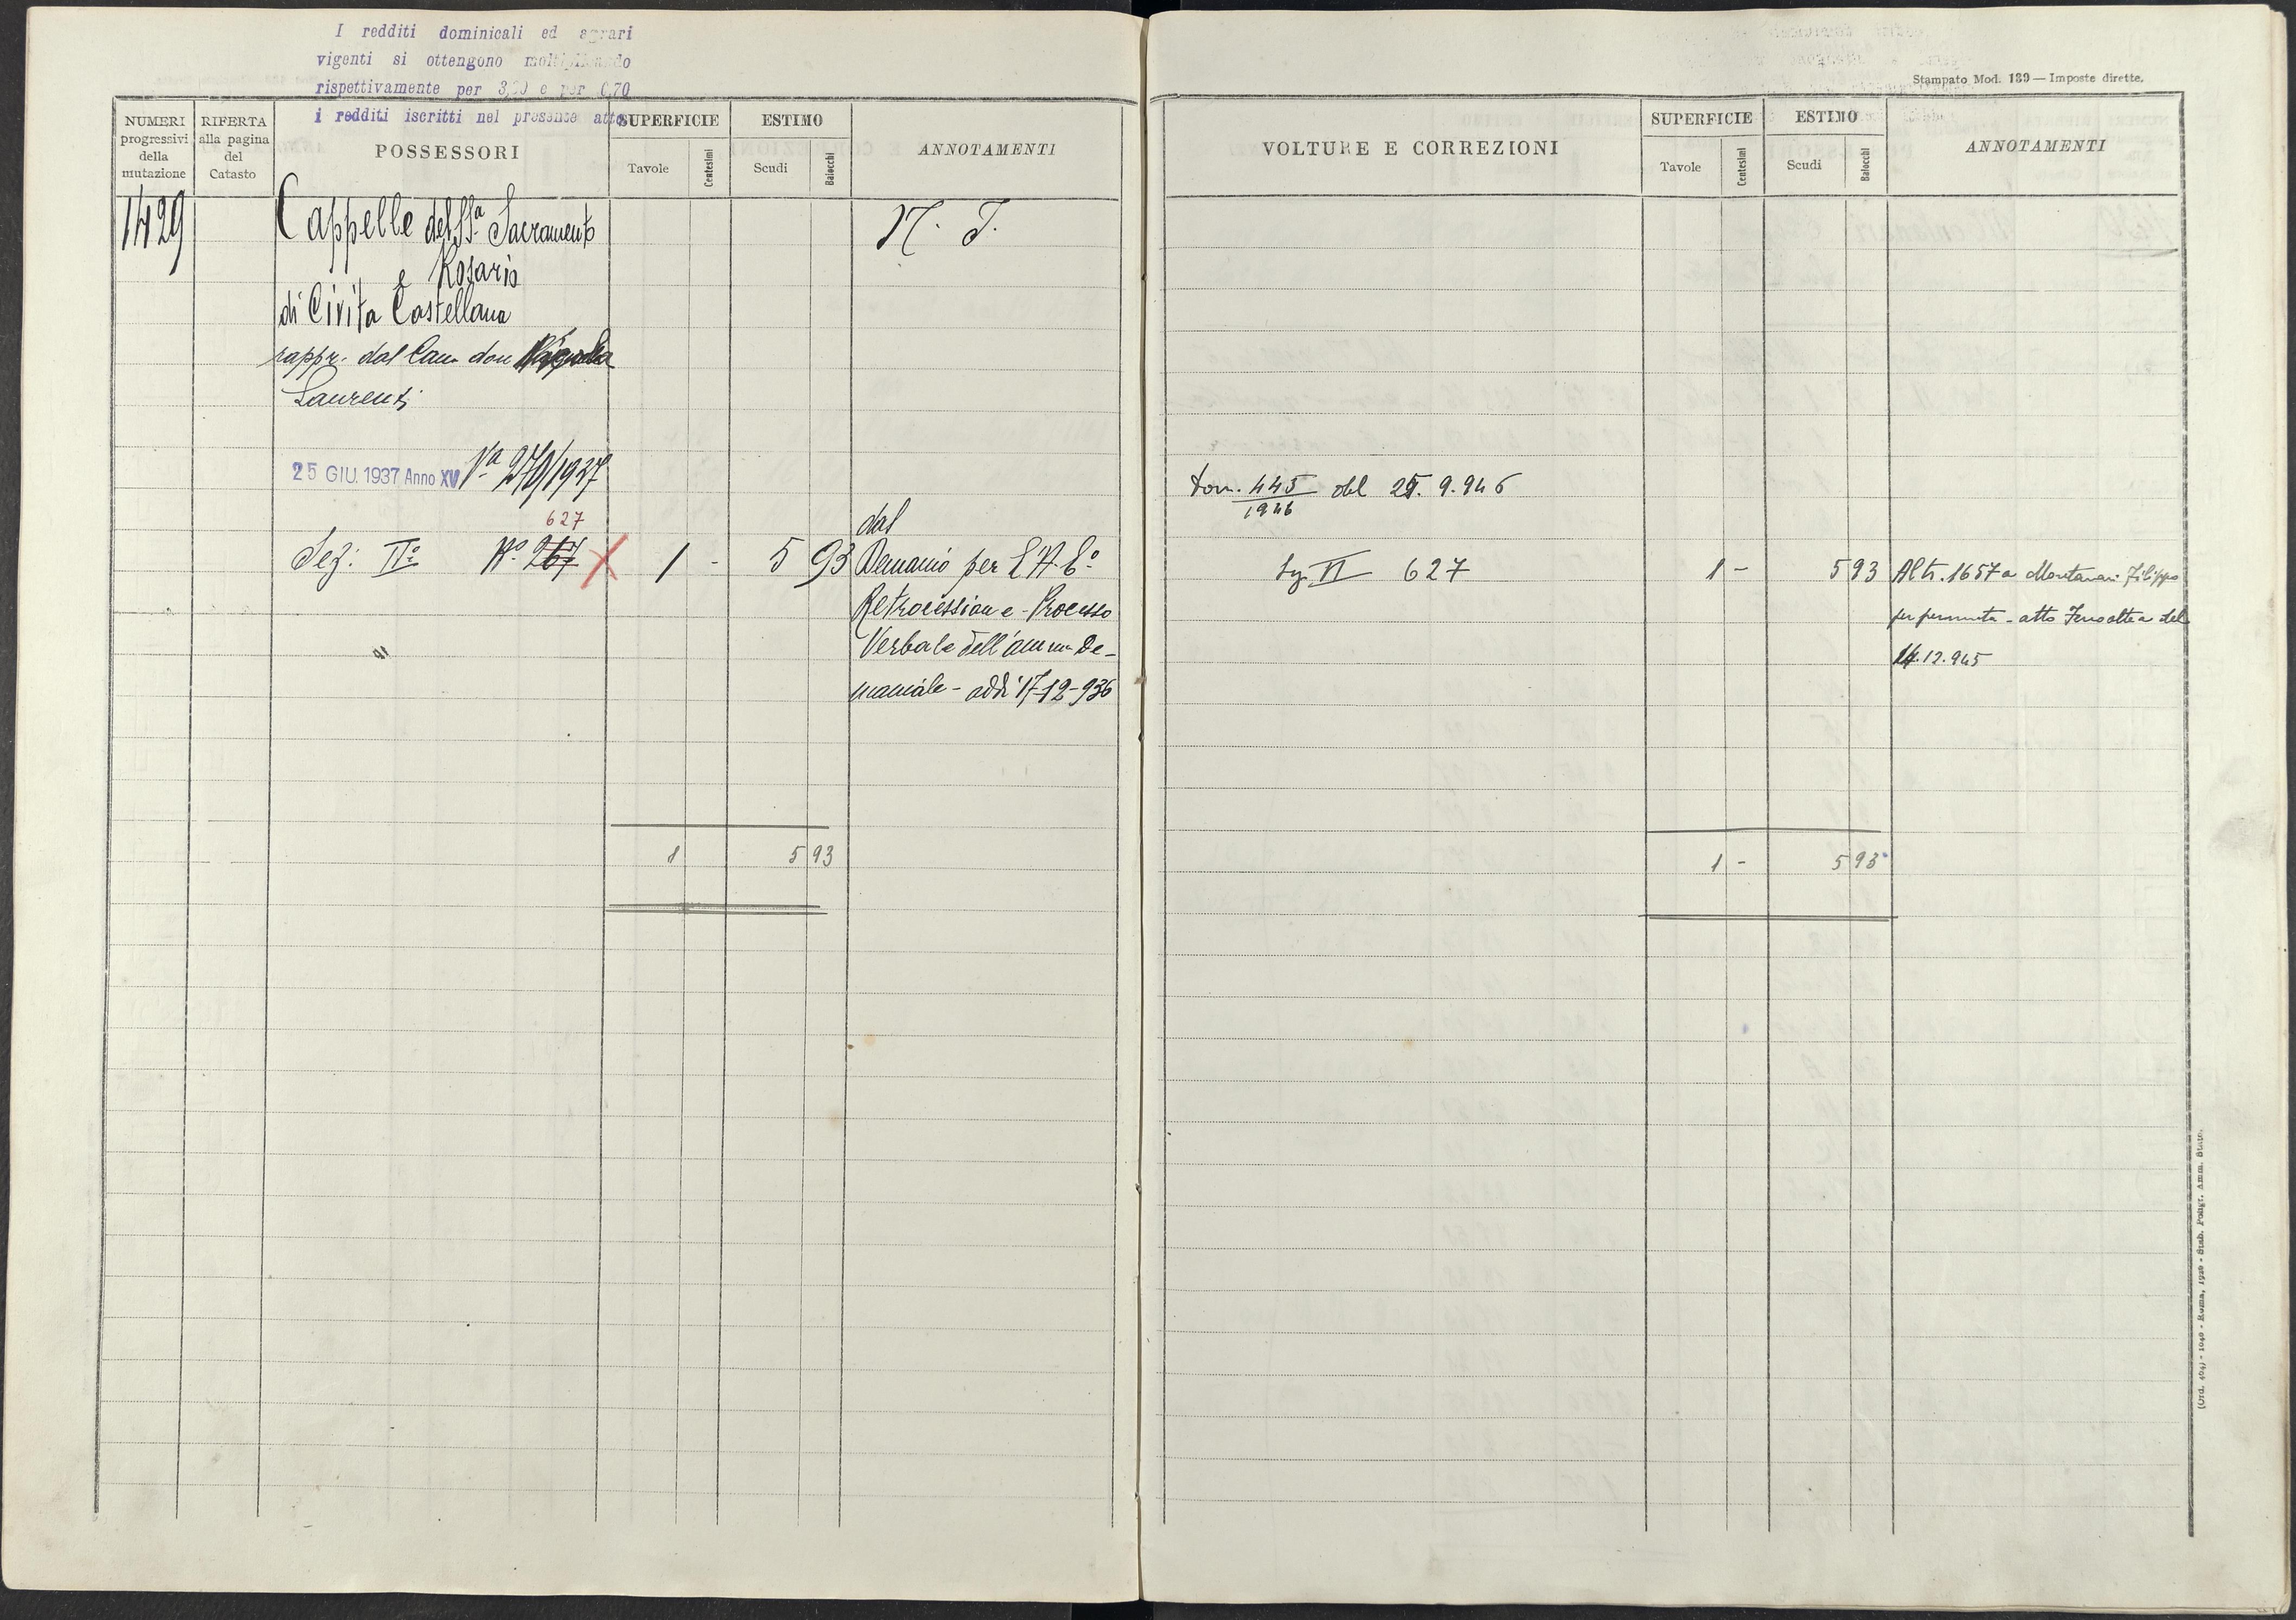 I redditi dominicali ed agrari
vigenti si ottengono moltiplicando
rispettivamente per 3,50 e per 0,70
i redditi iscritti nel presente atto
NUMERI progressivi della mutazione
RIFERTA alla pagina del Catasto
POSSESSORI
SUPERFICIE
Tavole
Centesimi
ESTIMO
Scudi
Baiocchi
ANNOTAMENTI
1429
Cappelle del SSª. Sacramento
N. T.
e Rosario
di Civita Castellana
rappr. dal Can. don
Laurenti
25 GIU. 1937 Anno XV Vª 270/1937
627
dal
Sez: IIº Nº 267 X 1 - 5 93 Demanio per L'A. Eº
Retrocessione - Processo
Verbale dell'amm. De-
maniale - addi 17-12-936
1 5 93
Stampato Mod. 139 — Imposte dirette.
VOLTURE E CORREZIONI
SUPERFICIE
Tavole
Centesimi
ESTIMO
Scudi
Baiocchi
ANNOTAMENTI
dom. 445/1946 del 25. 9. 946
Sez II 627 1 - 5 93 Altr. 1657 a Montanari Filippo
per permuta - atto del
14.12.945
1 - 5 93